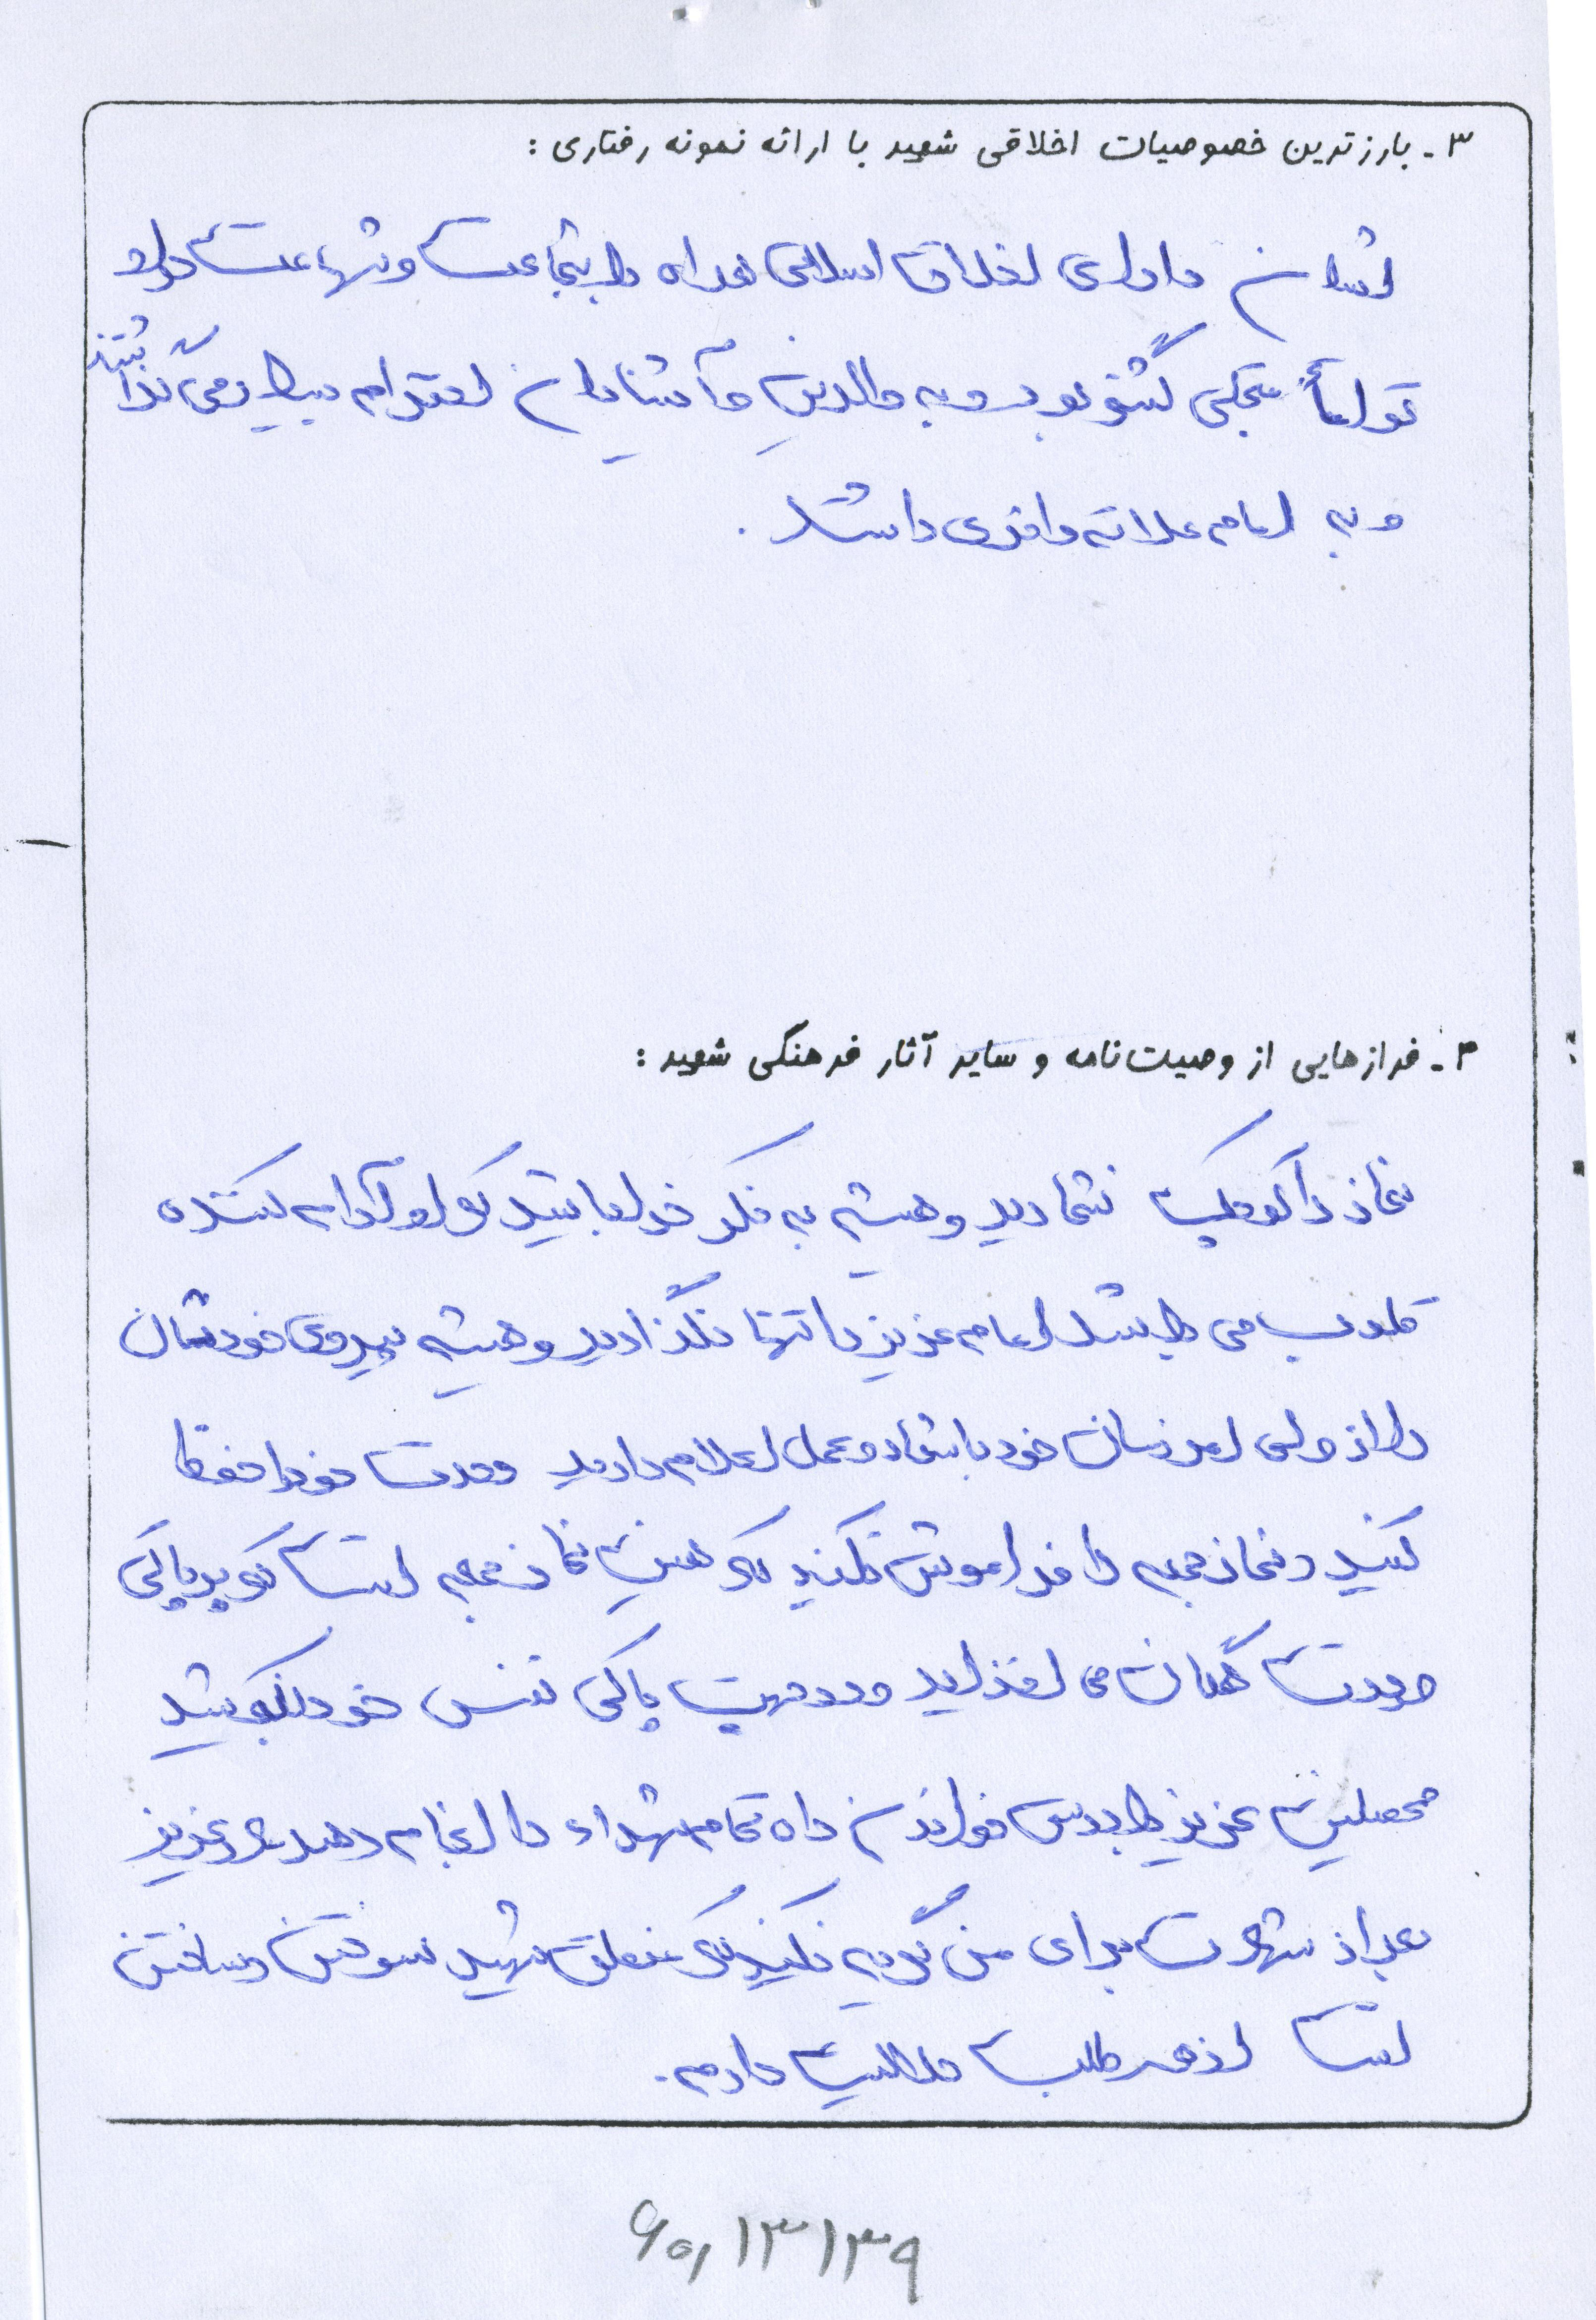 ۳- بارزترین خصوصیات اخلاقی شهید با ارائه نمونه رفتاری :
ایشان دارای اخلاق اسلامی همراه با شجاعت و شهامت در او
توأماً متجلی گشته بود و به والدین و آشنایان احترام بسیار می‌گذاشتند
و به امام علاقه وافری داشتند .
۴- فرازهایی از وصیت‌نامه و سایر آثار فرهنگی شهید :
نماز را کوچک نشمارید و همیشه به فکر خدا باشید که او آرام کننده
قلوب می باشد امام عزیز را تنها نگذارید و همیشه پیروی خودتان
را از ولی امر زمان خود با شعار و عمل اعلام دارید وحدت خود را حفظ
کنید و نماز جمعه را فراموش نکنید که همین نماز جمعه است که بر پاکی
وحدت می افزاید و در جهت پاکی نفس خود بکوشید
محصلین عزیز با درس خواندن راه تمام شهداء را انجام دهید عزیز
بعد از شهادت برای من گریه نکنید که شهید سوختن و ساختن
است از همه طلب حلالیت دارم .
۶۰۱۱۳۱۳۹